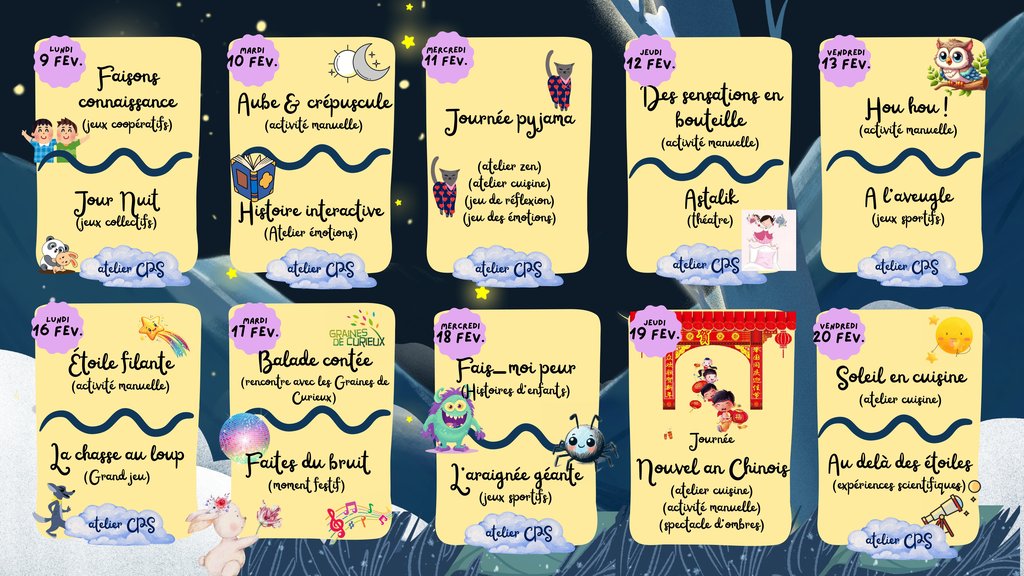 LUNDI
9 FÉV.
Faisons
connaissance
(jeux coopératifs)
Jour Nuit
(jeux collectifs)
atelier CPS
MARDI
10 FÉV.
Aube & crépuscule
(activité manuelle)
Histoire interactive
(Atelier émotions)
atelier CPS
MERCREDI
11 FÉV.
Journée pyjama
(atelier zen)
(atelier cuisine)
(jeu de réflexion)
(jeu des émotions)
atelier CPS
JEUDI
12 FÉV.
Des sensations en
bouteille
(activité manuelle)
Astalik
(théatre)
atelier CPS
VENDREDI
13 FÉV.
Hou hou !
(activité manuelle)
A l'aveugle
(jeux sportifs)
atelier CPS
LUNDI
16 FÉV.
Étoile filante
(activité manuelle)
La chasse au loup
(Grand jeu)
atelier CPS
MARDI
17 FÉV.
GRAINES
DE CURIEUX
Balade contée
(rencontre avec les Graines de
Curieux)
Faites du bruit
(moment festif)
MERCREDI
18 FÉV.
Fais_moi peur
(Histoires d'enfants)
L'araignée géante
(jeux sportifs)
atelier CPS
JEUDI
19 FÉV.
Journée
Nouvel an Chinois
(atelier cuisine)
(activité manuelle)
(spectacle d'ombres)
VENDREDI
20 FÉV.
Soleil en cuisine
(atelier cuisine)
Au delà des étoiles
(expériences scientifiques)
atelier CPS